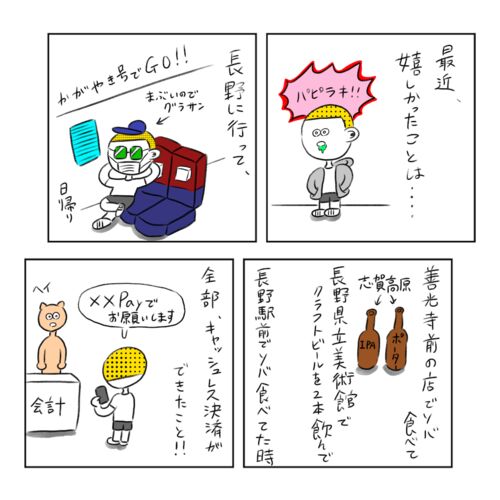 最近、
嬉しかったことは・・・
パピラキ!!
長野に行って、
かがやき号でGO!!
まぶいので
グラサン
日帰り
善光寺前の店でソバ
食べて
志賀高原
IPA
ポーター
長野県立美術館で
クラフトビールを2本飲んで
長野駅前でソバ食べてた時
全部、キャッシュレス決済が
できたこと!!
××Payで
お願いします
ヘイ
会計